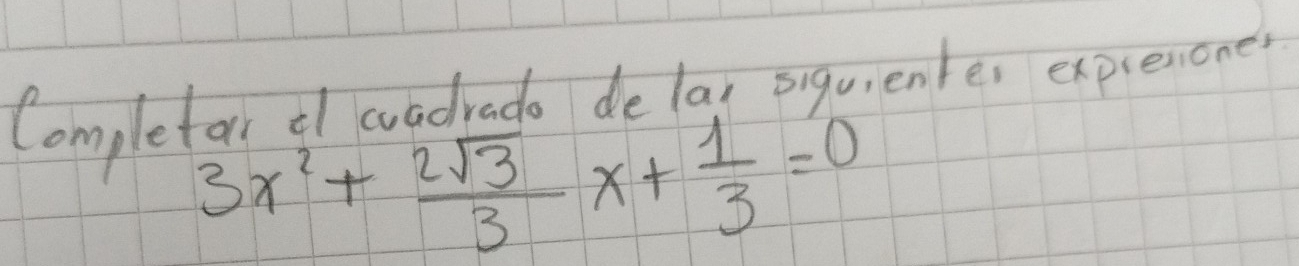 Completar el cuadrado de las siguientes expresiones.
3x² + \frac{2\sqrt{3}}{3} x + \frac{1}{3} = 0